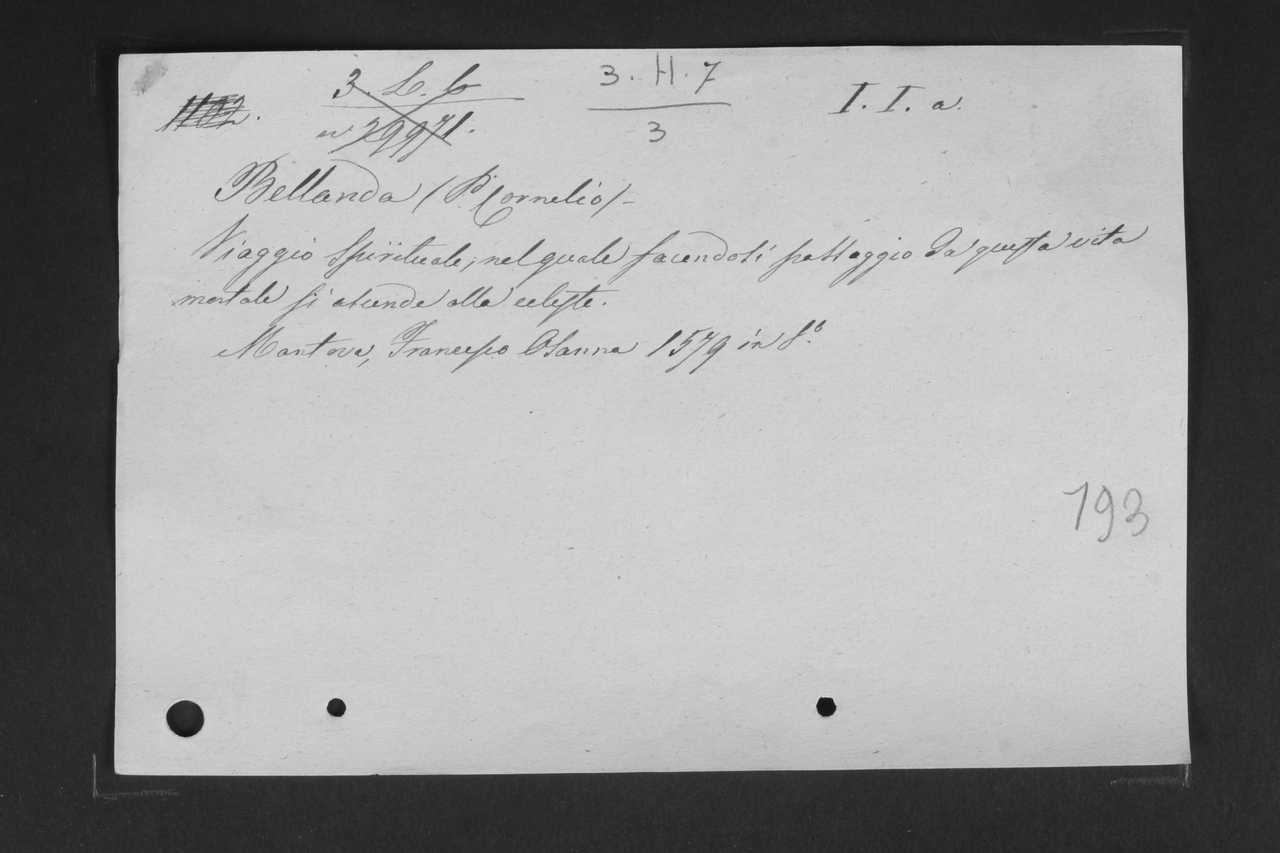 1102. 3. L. 6 3. H. 7 I. I. a.
n° 29971. 3
Bellanda (P. Cornelio) -
Viaggio Spirituale, nel quale facendosi passaggio da questa vita
mortale si ascende alla celeste.
Mantova, Francesco Osanna 1579 in 8.°
193